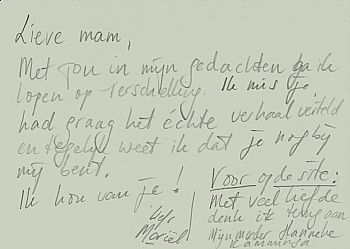 Lieve mam,
Met jou in mijn gedachten ga ik
lopen op Terschelling. Ik mis je,
had graag het échte verhaal verteld
en tegelijk weet ik dat je nog bij
mij bent.
Ik hou van je!
liefs
Mariël
Voor op de site:
Met veel liefde
denk ik terug aan
mijn moeder Hanneke
Kamminga.